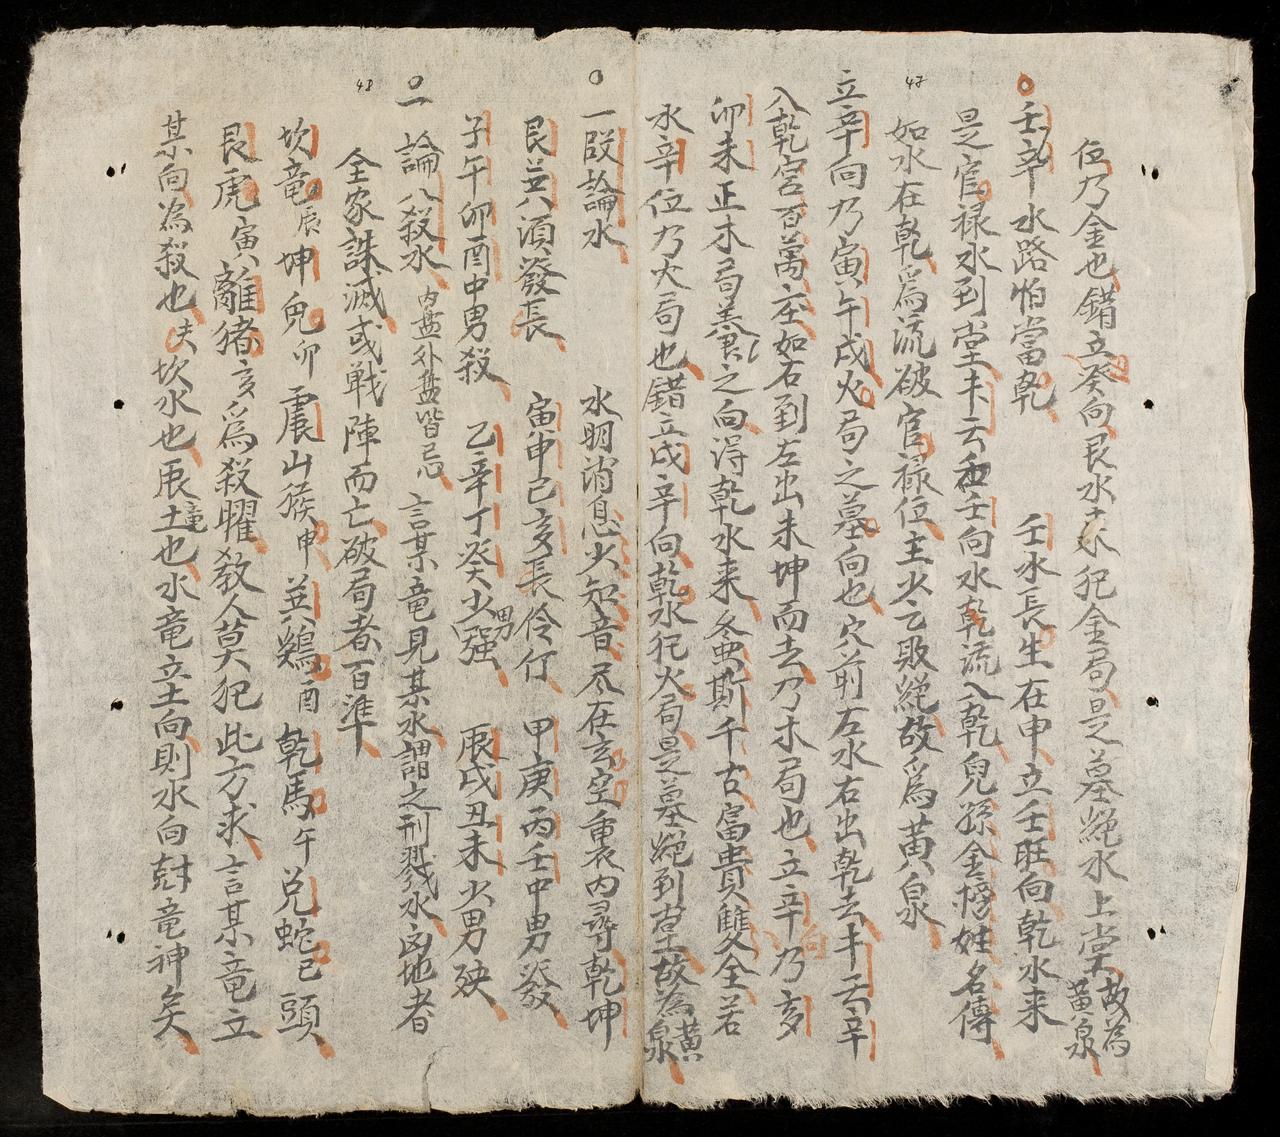 位乃金也錯立癸向艮水来犯金局是墓絶水上堂故為黄泉
壬辛水路怕當乾 壬水長生在申立壬旺向乾水来
是官禄水到堂卡云和壬向水乾流入乾兒孫金榜姓名傳
47
如水在乾爲流破官禄位主火云敗絕故爲黄泉
立辛向乃寅午戌火局之墓向也穴前左水右出乾去丰云辛
入乾宮百萬庄如右到左出未坤而去乃木局也立辛向乃亥
卯未正木局養之向淂乾水来螽斯千古富貴雙全若
水辛位乃火局也錯立戌辛向乾水犯火局是墓絕到堂故為黄泉
一段論水 水明消息少知音尽在玄空重衣内尋乾坤
艮巽八須發長 寅申巳亥長伶仃 甲庚丙壬中男發
子午卯酉中男殺 乙辛丁癸火少男强 辰戌丑未少男殃
一論八殺水 内盘外盘皆忌 言某竜見某水謂之刑戮水凶地者
48
全家誅滅或戦陣而亡破局者百準
坎竜辰坤兎卯震山猴申巽鷄酉乾馬午兑蛇巳頭
艮虎寅離猪亥爲殺曜教人莫犯此方求言某竜立
某向為殺也夫坎水也辰土竜也水竜立土向則水向尅竜神矣